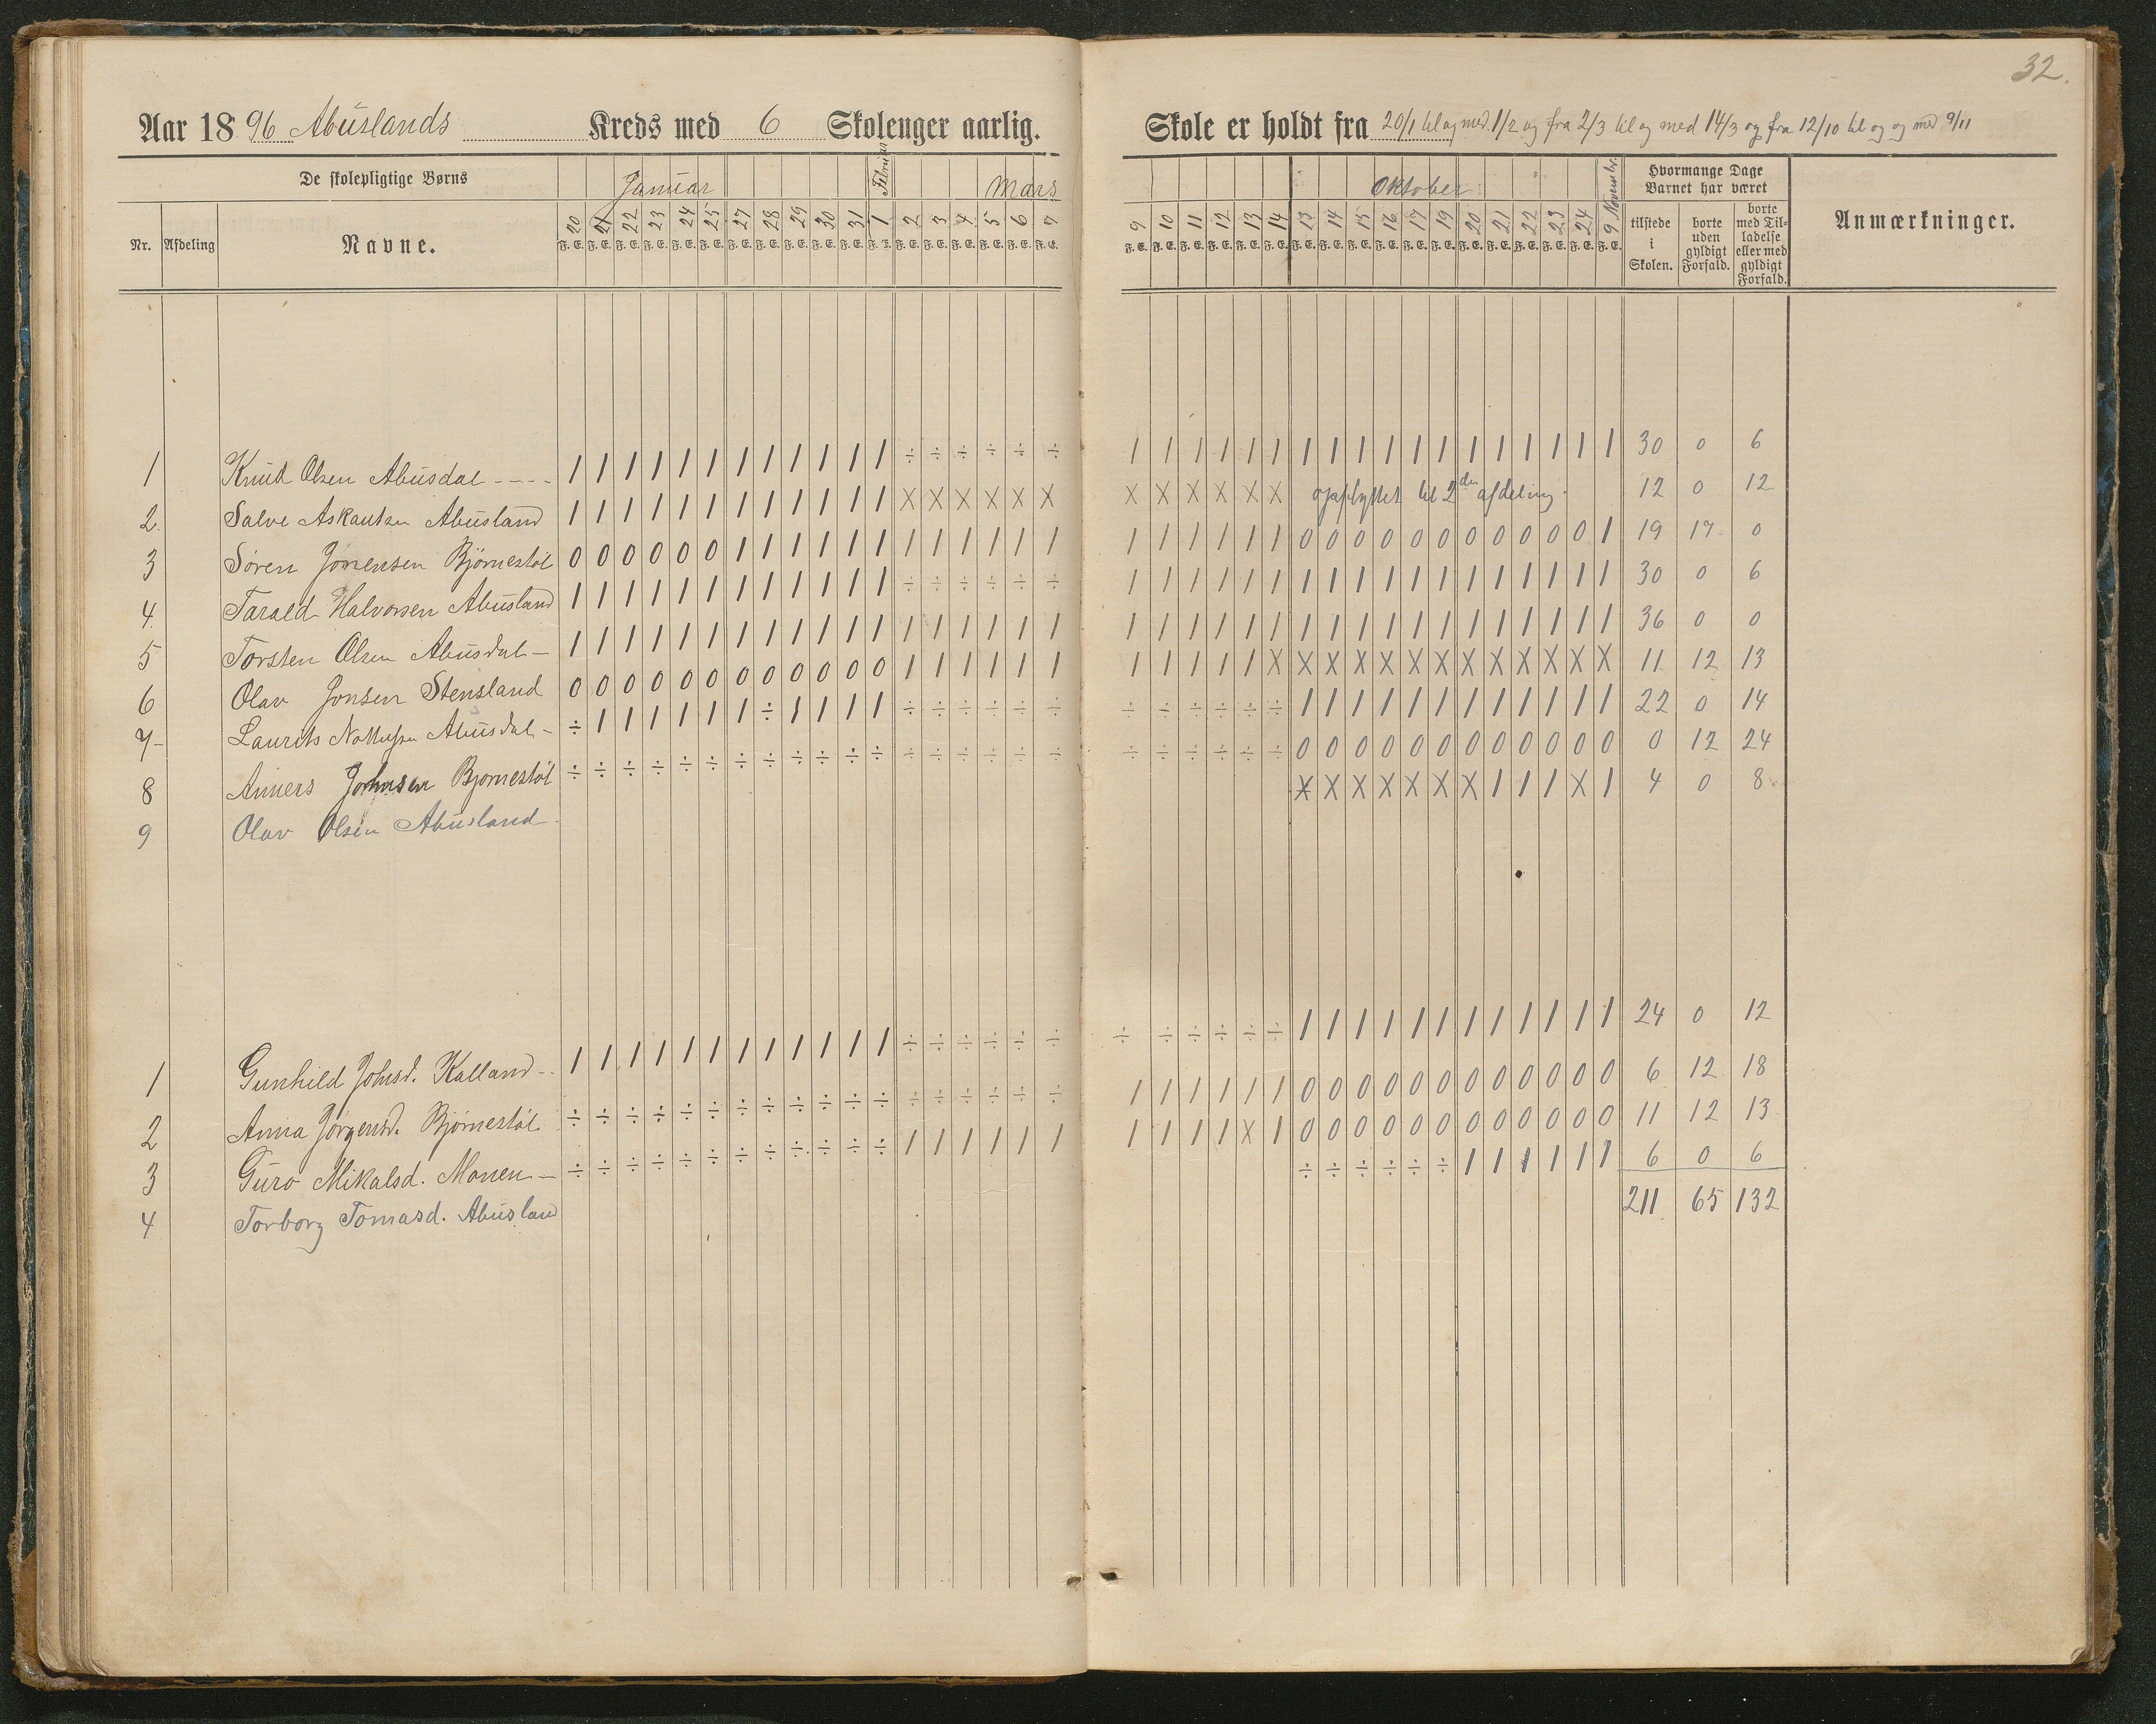 32.
Aar 1896 Abuslands Kreds med 6 Skoleuger aarlig.
Skole er holdt fra 20/1 til og med 1/2 og fra 2/3 til og med 14/3 og fra 12/10 til og og med 9/11
De skolepligtige Børns Januar Februar Mars
Oktober November. Hvormange Dage Barnet har været
Nr. Afdeling Navne. 20 21 22 23 24 25 27 28 29 30 31 1 2 3 4 5 6 7
9 10 11 12 13 14 13 14 15 16 17 19 20 21 22 23 24 9 tilstede i Skolen. borte uden gyldigt Forfald. borte med Tilladelse eller med gyldigt Forfald. Anmærkninger.
F. E. F. E. F. E. F. E. F. E. F. E. F. E. F. E. F. E. F. E. F. E. F. E. F. E. F. E. F. E. F. E. F. E. F. E.
F. E. F. E. F. E. F. E. F. E. F. E. F. E. F. E. F. E. F. E. F. E. F. E. F. E. F. E. F. E. F. E. F. E. F. E.
1 Knud Olsen Abusdal - - - - 1 1 1 1 1 1 1 1 1 1 1 1 ÷ ÷ ÷ ÷ ÷ ÷ 1 1 1 1 1 1 1 1 1 1 1 1 1 1 1 1 1 1 30 0 6
2. Salve Askautsen Abusland 1 1 1 1 1 1 1 1 1 1 1 1 X X X X X X X X X X X X opflyttet til 2den afdeling. 12 0 12
3 Søren Jörensen Bjørnestøl 0 0 0 0 0 0 1 1 1 1 1 1 1 1 1 1 1 1 1 1 1 1 1 1 0 0 0 0 0 0 0 0 0 0 0 1 19 17 0
4. Tarald Halvorsen Abusland 1 1 1 1 1 1 1 1 1 1 1 1 ÷ ÷ ÷ ÷ ÷ ÷ 1 1 1 1 1 1 1 1 1 1 1 1 1 1 1 1 1 1 30 0 6
5 Torsten Olsen Abusdal - 1 1 1 1 1 1 1 1 1 1 1 1 1 1 1 1 1 1 1 1 1 1 1 1 1 1 1 1 1 1 1 1 1 1 1 1 36 0 0
6 Olav Jonsen Stensland 0 0 0 0 0 0 0 0 0 0 0 0 1 1 1 1 1 1 1 1 1 1 1 X X X X X X X X X X X X X 11 12 13
7- Laurits Abusdal - ÷ 1 1 1 1 1 1 ÷ 1 1 1 1 ÷ ÷ ÷ ÷ ÷ ÷ ÷ ÷ ÷ ÷ ÷ ÷ 1 1 1 1 1 1 1 1 1 1 1 1 22 0 14
8 Anners Bjornestøl ÷ ÷ ÷ ÷ ÷ ÷ ÷ ÷ ÷ ÷ ÷ ÷ ÷ ÷ ÷ ÷ ÷ ÷ ÷ ÷ ÷ ÷ ÷ ÷ 0 0 0 0 0 0 0 0 0 0 0 0 0 12 24
9 Olav Olsen Abusland - X X X X X X X 1 1 1 X 1 4 0 8
1 Gunhild Johnsd. Kalland - - 1 1 1 1 1 1 1 1 1 1 1 1 ÷ ÷ ÷ ÷ ÷ ÷ ÷ ÷ ÷ ÷ ÷ ÷ 1 1 1 1 1 1 1 1 1 1 1 1 24 0 12
2 Anna Jørgensd. Bjørnestøl ÷ ÷ ÷ ÷ ÷ ÷ ÷ ÷ ÷ ÷ ÷ ÷ ÷ ÷ ÷ ÷ ÷ ÷ 1 1 1 1 1 1 0 0 0 0 0 0 0 0 0 0 0 0 6 12 18
3 Guro Mikalsd. Monen - ÷ ÷ ÷ ÷ ÷ ÷ ÷ ÷ ÷ ÷ ÷ ÷ 1 1 1 1 1 1 1 1 1 1 X 1 0 0 0 0 0 0 0 0 0 0 0 0 11 12 13
4 Torborg Tomasd. Abusland ÷ ÷ ÷ ÷ ÷ ÷ 1 1 1 1 1 1 6 0 6
211 65 132